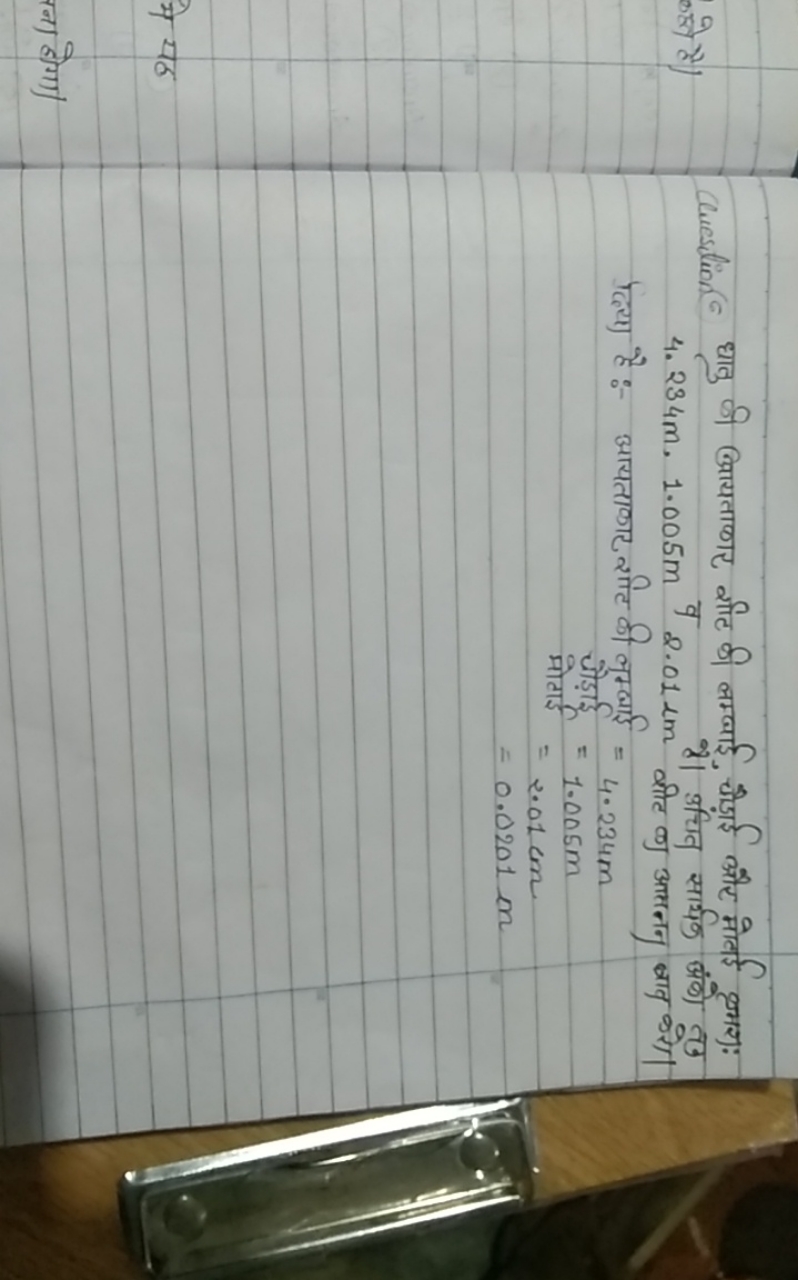 ने
कहते है।
में यह
होगा।
Question 6 धातु की आयताकार शीट की लम्बाई, चौड़ाई और मोटाई क्रमशः
4.234m, 1.005m व 2.01cm है। उचित सार्थक अंको तक
शीट का आयतन ज्ञात करो।
दिया है :- आयताकार शीट की लम्बाई = 4.234m
चौड़ाई = 1.005m
मोटाई = 2.01cm
= 0.0201 m